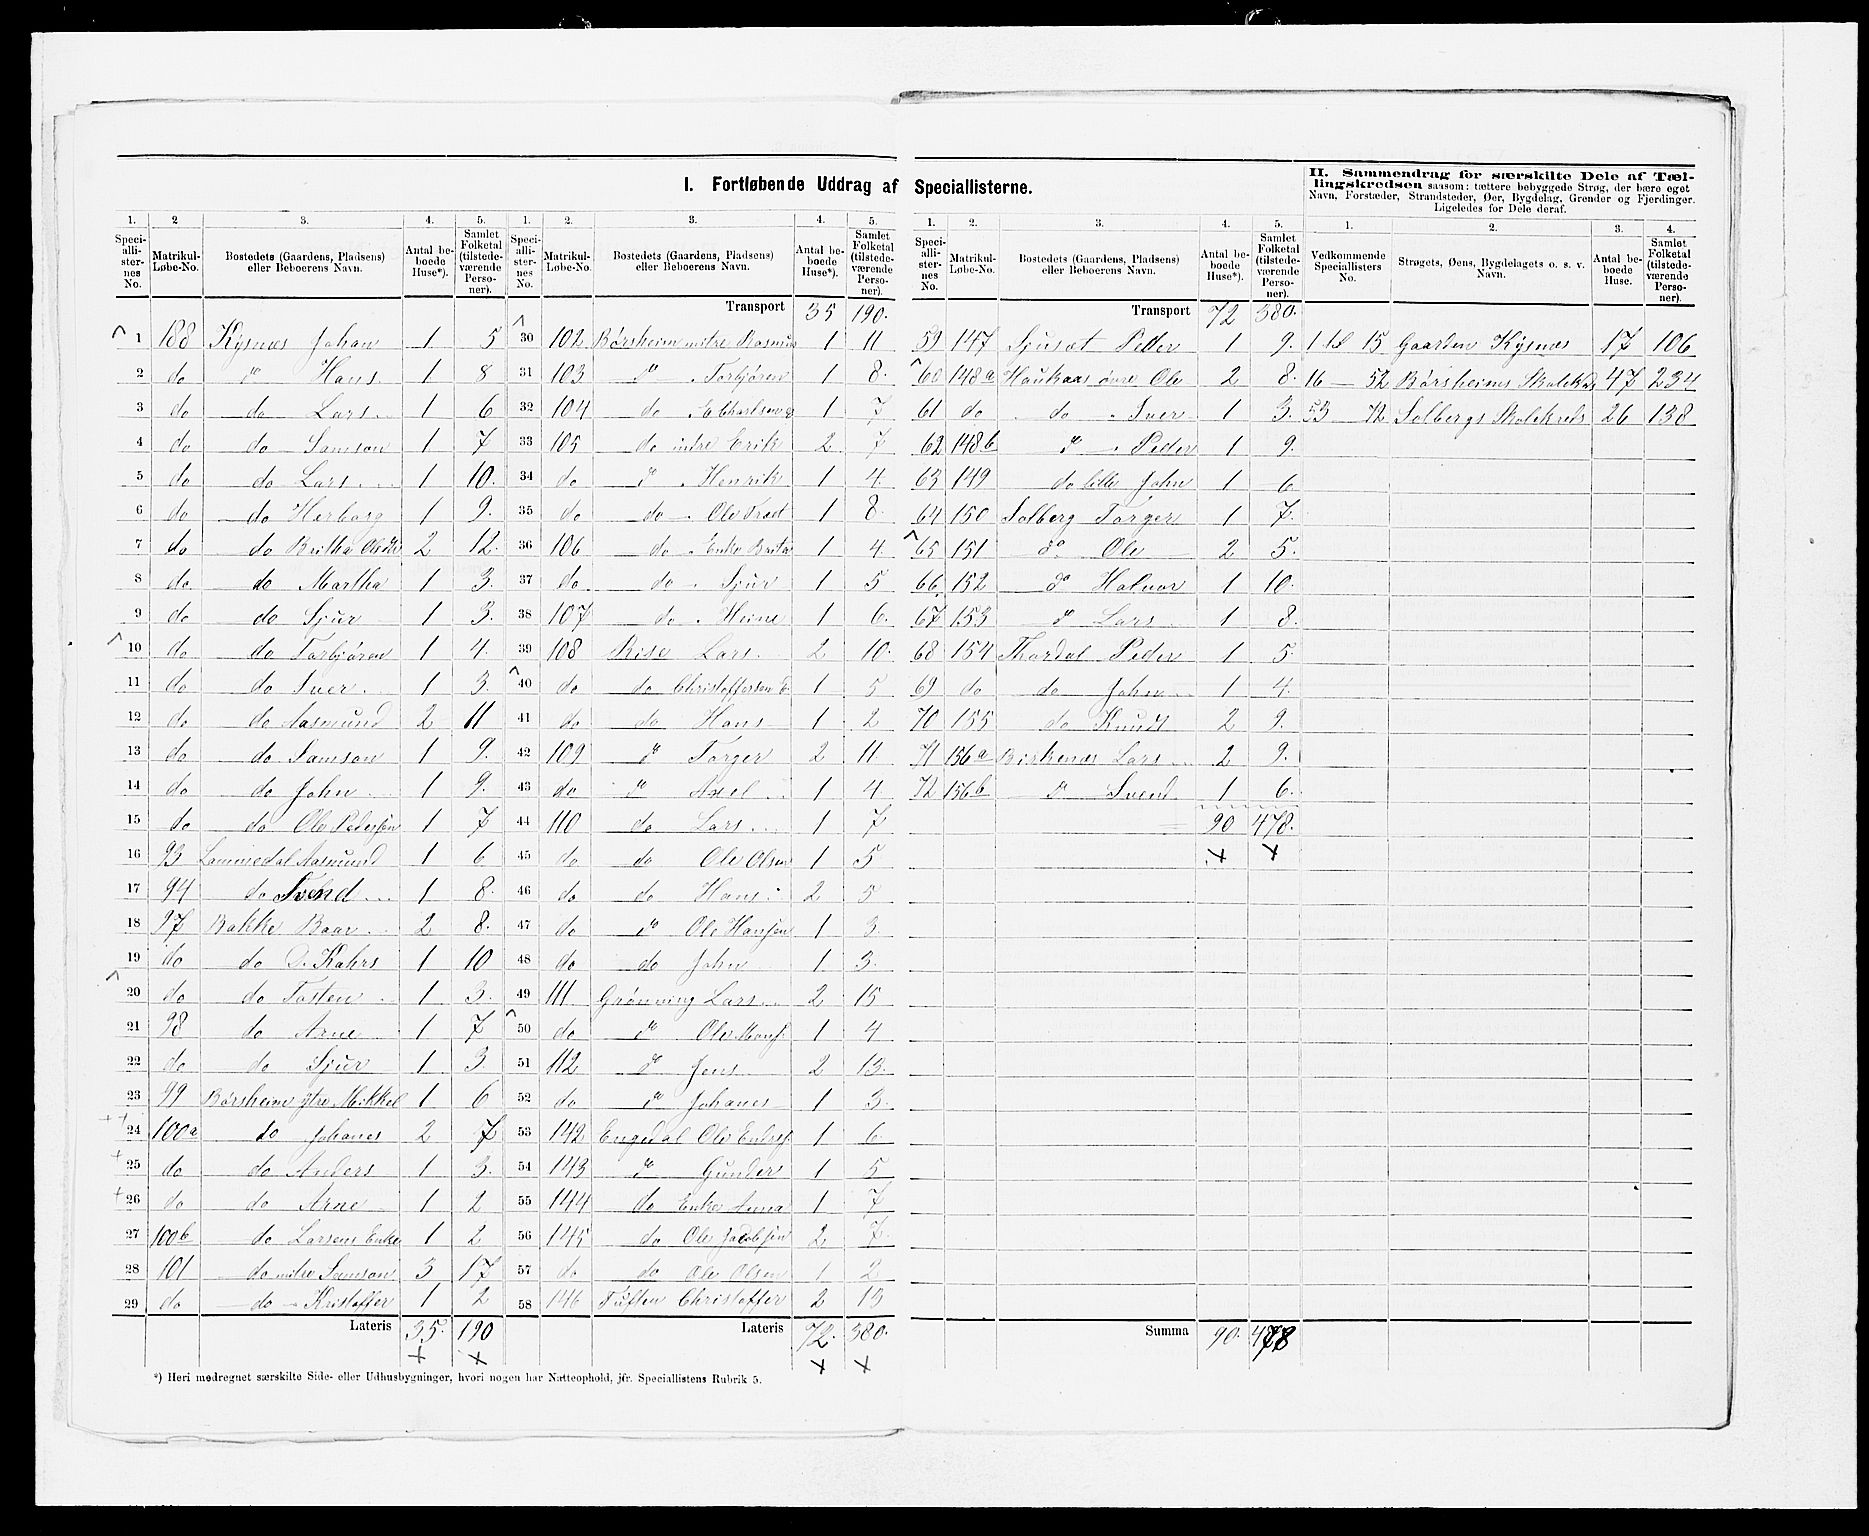 I. Fortløbende Uddrag af Speciallisterne.
II. Sammendrag for særskilte Dele af Tæl-
lingskredsen saasom: tættere bebyggede Strøg, der bære eget
Navn, Forstæder, Strandsteder, Øer, Bygdelag, Grender og Fjerdinger.
Ligeledes for Dele deraf.
1. Speciallisternes No. 2 Matrikul-Løbe-No. 3. Bostedets (Gaardens, Pladsens) eller Beboerens Navn. 4. Antal beboede Huse*). 5. Samlet Folketal (tilstedeværende Personer).
1 188 Kysnæs Johan 1 5
2 do do Hans 1 8
3 do do Lars 1 6
4 do do Samson 1 7
5 do do Lars 1 10.
6 do do Herborg 1 9.
7 do do Britha 2 12.
8 do do Martha 1 3.
9 do do Sjur 1 3.
10 do do Torbjøren 1 4.
11 do do Iver 1 3.
12 do do Aasmund 2 11
13 do do Samson 1 9.
14 do do John 1 9.
15 do do Ole Pedersøn 1 7
16 93 Lammedal Aasmund 1 6
17 94 do Svend 1 8.
18 97 Bakke Baar 2 8.
19 do do D. Kahrs 1 10
20 do do Tosten 1 3.
21 98 do Arne 1 7
22 do do Sjur 1 3
23 99 Børsheim ytre Mikkel 1 6
24 100a do Johanes 2 7
25 do do Anders 1 3.
26 do do Arne 1 2
27 100b do Larsens Enke 1 2
28 101 do mitre Samson 3 17
29 do do Kristoffer 1 2
Lateris 35. 190
1. Speciallisternes No. 2. Matrikul-Løbe-No. 3. Bostedets (Gaardens, Pladsens) eller Beboerens Navn. 4. Antal beboede Huse*). 5. Samlet Folketal (tilstedeværende Personer).
Transport 35 190.
30 102 Børsheim mitre Rasmus 1 11
31 103 do Torbjøren 1 8.
32 104 do 1 7
33 105 do indre Erik 2 7
34 do do Henrik 1 4.
35 do do Ole 1 8.
36 106 do Enke Brita 1 4
37 do do Sjur 1 5
38 107 do Heine 1 6.
39 108 Rise Lars 2 10.
40 do do Christoffersen E 1 5
41 do do Hans 1 2
42 109 do Torger 2 11
43 do do Axel 1 4
44 110 do Lars 1 7
45 do do Ole Olsen 1 5
46 do do Hans 2 5
47 do do Ole Hansen 1 3
48 do do John 1 3.
49 111. Grønning Lars 2 15
50 do do Ole 1 4
51 112 do Jens 2 13.
52 do do Johanes 1 3.
53 142 Engedal Ole 1 6
54 143 do Gunder 1 5
55 144 do Enke Anna 1 7
56 145 do Ole Jacobsen 2 7.
57 do do Ole Olsen 1 2
58 146 Tuften Christoffer 2 13
Lateris 72. 380.
1. Speciallisternes No. 2. Matrikul-Løbe-No. 3. Bostedets (Gaardens, Pladsens) eller Beboerens Navn. 4. Antal beboede Huse*). 5. Samlet Folketal (tilstedeværende Personer).
Transport 72 380.
59 147 Sjusæt Peder 1 9.
60 148a Haukaas øvre Ole 2 8.
61 do do Iver 1 3.
62 148b do Peder 1 9.
63 149 do lille John 1 6
64 150 Solberg Torger 1 7.
65 151 do Ole 2 5.
66 152 do Halvor 1 10.
67 153 do Lars 1 8.
68 154 Thordal Peder 1 5.
69 do do John 1 4.
70 155 do Knud 2 9.
71 156a Birkenæs Lars 2 9.
72 156b do Svend 1 6.
90 478.
Summa 90. 478
1. Vedkommende Speciallisters No. 2. Strøgets, Øens, Bygdelagets o. s. v. Navn. 3. Antal beboede Huse. 4. Samlet Folketal (tilstedeværende Personer).
1 til 15 Gaarden Kysnæs 17 106
16 — 52 Børsheims Skolekreds 47 234
53 — 72 Solbergs Skolekreds 26 138
*) Heri medregnet særskilte Side- eller Udhusbygninger, hvori nogen har Natteophold, jfr. Speciallistens Rubrik 5.